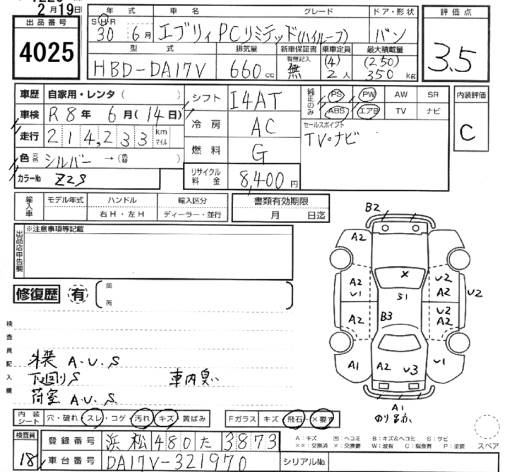 2月19日
出品番号
4025
年式 グレード ドア・形状
S H R
30年6月 エブリィ PCリミテッド(ハイルーフ) バン
型式 排気量 新車保証書 乗車定員 最大積載量
HBD-DA17V 660cc 有無記入 無 (4) 2人 (250) 350kg
評価点
3.5
車歴 自家用・レンタ( )
車検 R8年6月(14日)
走行 214,233 km マイル
色 元色 シルバー → (替 )
カラーNo. Z2S
シフト I4AT
冷房 AC
燃料 G
リサイクル料金 8,400円
純正のみ PS PW AW SR
ABS エアB TV ナビ
セールスポイント
TV・ナビ
内装評価
C
輸入車 モデル年式 ハンドル 輸入区分
年 右H・左H ディーラー・並行
書類有効期限
月 日迄
出品店申告欄
※注意事項等記載
修復歴 有
検査員記入欄
外装 A.U.S
下回りS
荷室 A.U.S
車内臭い
B2
A2 A2 U2
A2 U1 × S1 U2 A2 U2
A2 B3 U2 A2
A1 A2 U3 U1
A1
内装シート 穴・破れ スレ・コゲ 汚れ キズ 黄ばみ
Fガラス キズ 飛石 ×要す
A:キズ U:ヘコミ B:キズ&ヘコミ S:サビ
スペア
検査員 18
登録番号 浜松480た3873
車台番号 DA17V-321970
シリアルNo.